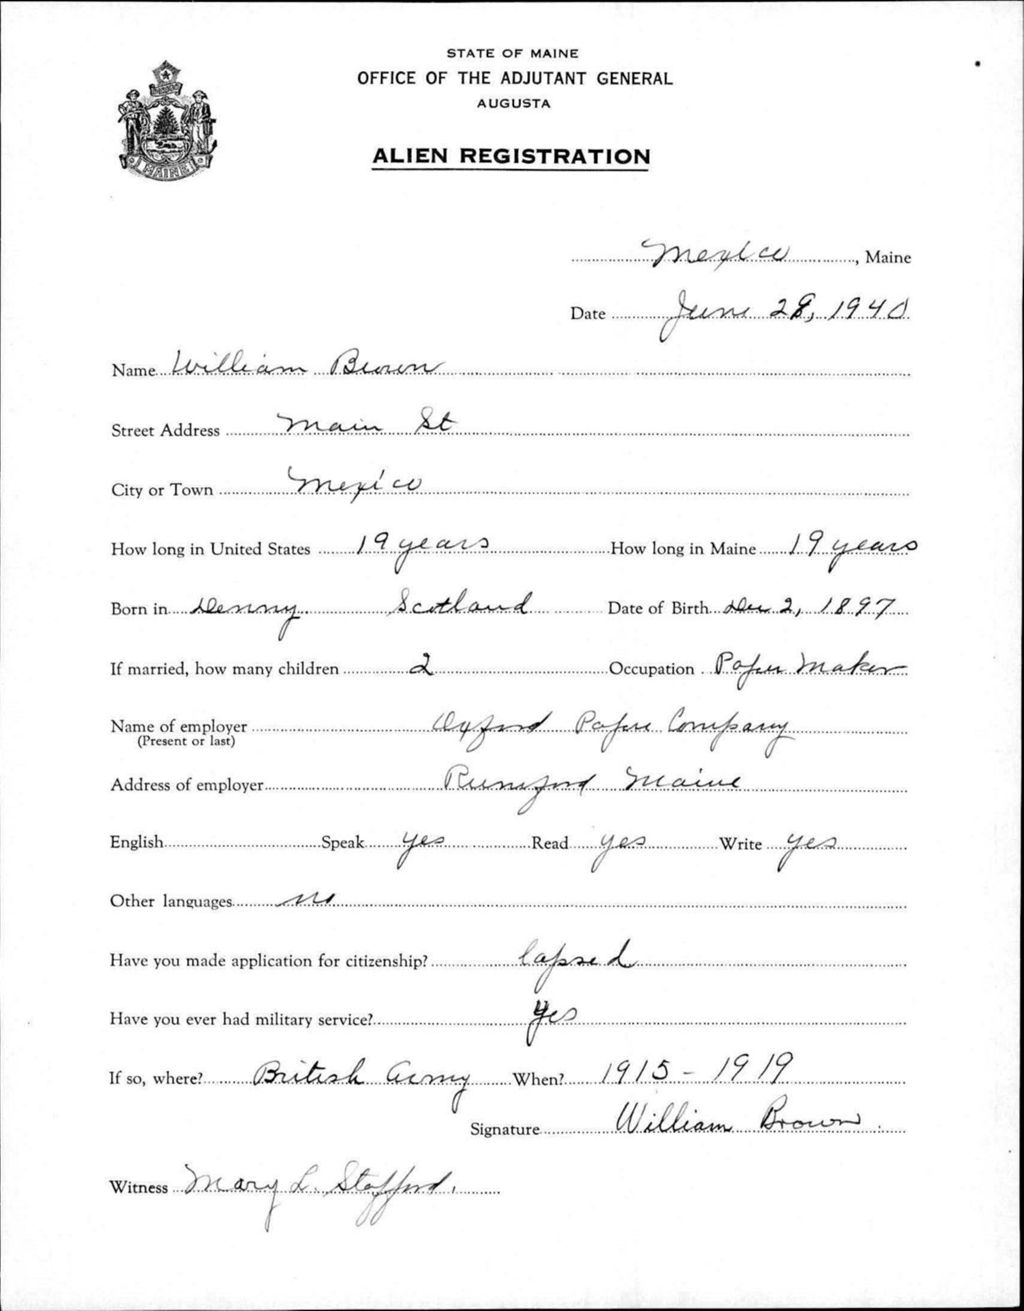 STATE OF MAINE
OFFICE OF THE ADJUTANT GENERAL
AUGUSTA
ALIEN REGISTRATION
MAINE
Mexico, Maine
Date June 28, 1940
Name William Brown
Street Address Main St
City or Town Mexico
How long in United States 19 years How long in Maine 19 years
Born in Denny Scotland Date of Birth Dec 2, 1897
If married, how many children 2 Occupation Paper Maker
Name of employer Oxford Paper Company
(Present or last)
Address of employer Rumford Maine
English Speak yes Read yes Write yes
Other languages no
Have you made application for citizenship? lapsed
Have you ever had military service? yes
If so, where? British Army When? 1915 - 1919
Signature William Brown
Witness Mary L. Stafford.